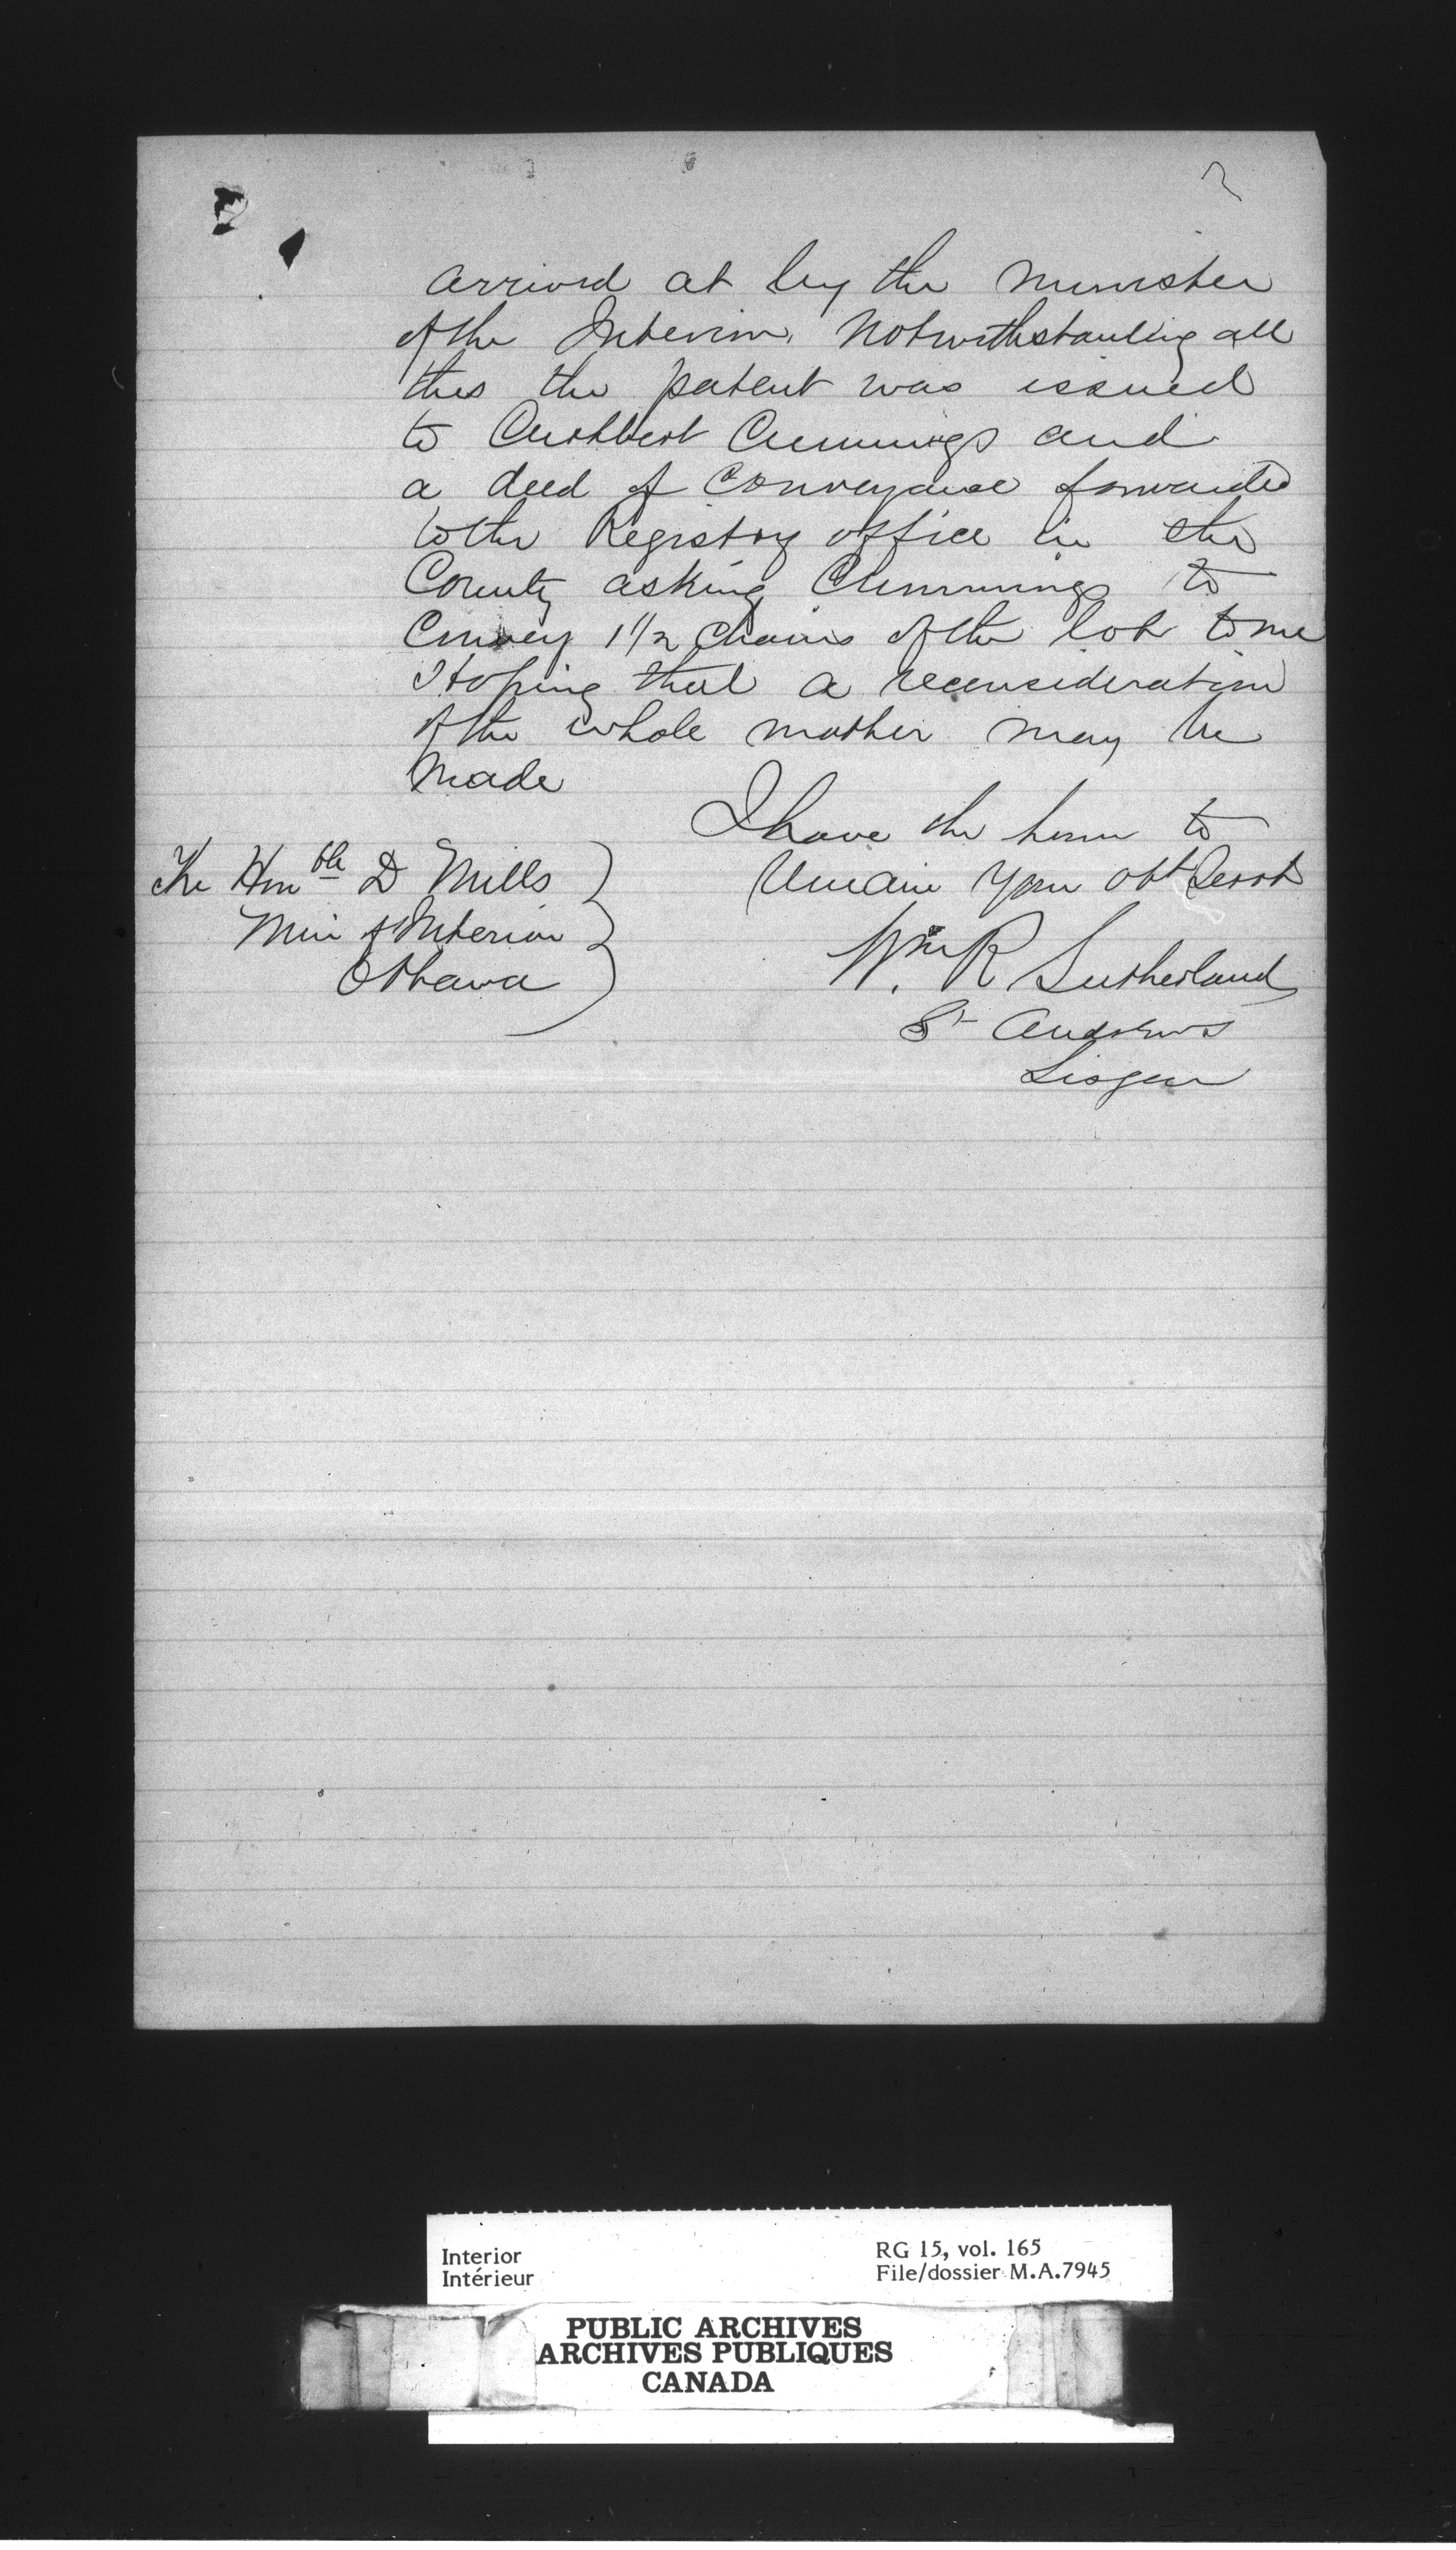 arrived at by the Minister
of the Interior. Notwithstanding all
this the patent was issued
to Cuthbert Cummings and
a deed of Conveyance forwarded
to the Registry office in the
County asking Cummings to
Convey 1 1/2 Chains of the lot to me
Hoping that a reconsideration
of the whole matter may be
made
I have the honor to
remain your obt Servt
Wm R Sutherland
St Andrews
Lisgar
The Honble D Mills
Min of Interior
Ottawa
Interior
Intérieur
RG 15, vol. 165
File/dossier M.A.7945
PUBLIC ARCHIVES
ARCHIVES PUBLIQUES
CANADA